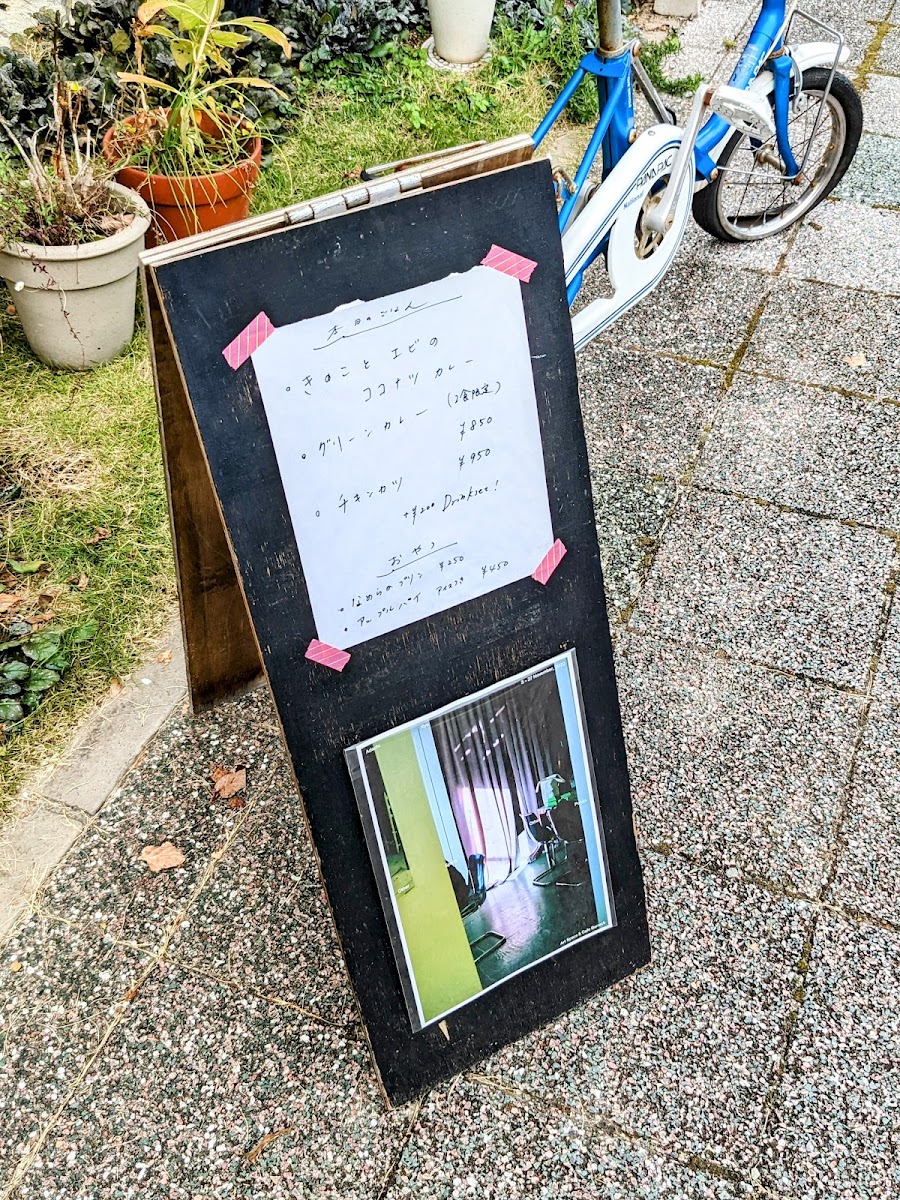 本日のごはん
• きのことエビの
ココナツ カレー
(2食限定)
• グリーンカレー ¥850
• チキンカツ ¥950
+¥200 Drinkset!
おやつ
• なめらかプリン ¥250
• アップルパイ アイスつき ¥450
Other
Art Space & Cafe Barrack
PANAPAC
National